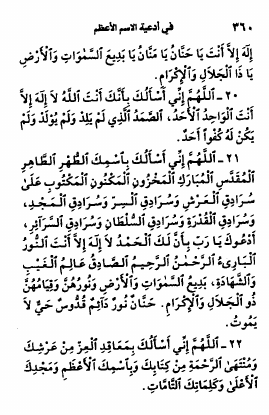 ٣٦٠ في أدعية الاسم الأعظم
إِلَهَ إِلاَّ أَنْتَ يَا حَنَّانُ يَا مَنَّانُ يَا بَدِيعَ السَّمٰوَاتِ وَالْأَرْضِ
يَا ذَا الْجَلاَلِ وَالْإِكْرَامِ.
٢٠ - اَللَّهُمَّ إِنِّي أَسْأَلُكَ بِأَنَّكَ أَنْتَ اللَّهُ لاَ إِلَهَ إِلاَّ
أَنْتَ الْوَاحِدُ الْأَحَدُ، الصَّمَدُ الَّذِي لَمْ يَلِدْ وَلَمْ يُولَدْ وَلَمْ
يَكُنْ لَهُ كُفُواً أَحَدٌ.
٢١ - اَللَّهُمَّ إِنِّي أَسْأَلُكَ بِاسْمِكَ الطُّهْرِ الطَّاهِرِ
الْمُقَدَّسِ الْمُبَارَكِ الْمَخْزُونِ الْمَكْنُونِ الْمَكْتُوبِ عَلَىٰ
سُرَادِقِ الْعَرْشِ وَسُرَادِقِ السِّرِّ وَسُرَادِقِ الْمَجْدِ،
وَسُرَادِقِ الْقُدْرَةِ وَسُرَادِقِ السُّلْطَانِ وَسُرَادِقِ السَّرَآئِرِ،
أَدْعُوكَ يَا رَبِّ بِأَنَّ لَكَ الْحَمْدُ لاَ إِلَهَ إِلاَّ أَنْتَ النُّورُ
الْبَارِىءُ الرَّحْمٰنُ الرَّحِيمُ الصَّادِقُ عَالِمُ الْغَيْبِ
وَالشَّهَادَةِ، بَدِيعُ السَّمٰوَاتِ وَالْأَرْضِ وَنُورُهُنَّ وَقِيَامُهُنَّ
ذُو الْجَلاَلِ وَالْإِكْرَامِ. حَنَّانٌ نُورٌ دَآئِمٌ قُدُّوسٌ حَيٌّ لاَ
يَمُوتُ.
٢٢ - اَللَّهُمَّ إِنِّي أَسْأَلُكَ بِمَعَاقِدِ الْعِزِّ مِنْ عَرْشِكَ
وَمُنْتَهَى الرَّحْمَةِ مِنْ كِتَابِكَ وَبِاسْمِكَ الْأَعْظَمِ وَمَجْدِكَ
الْأَعْلَىٰ وَكَلِمَاتِكَ التَّامَّاتِ.